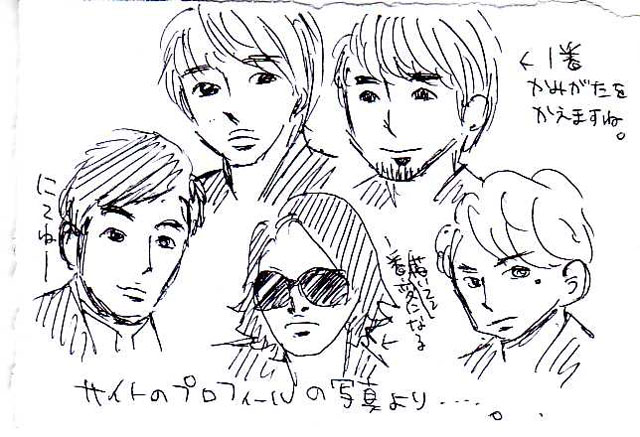 ←1番
かみがたを
かえますね。
にてねー
描いてて
一番変になる
←
サイトのプロフィールの写真より・・・・。